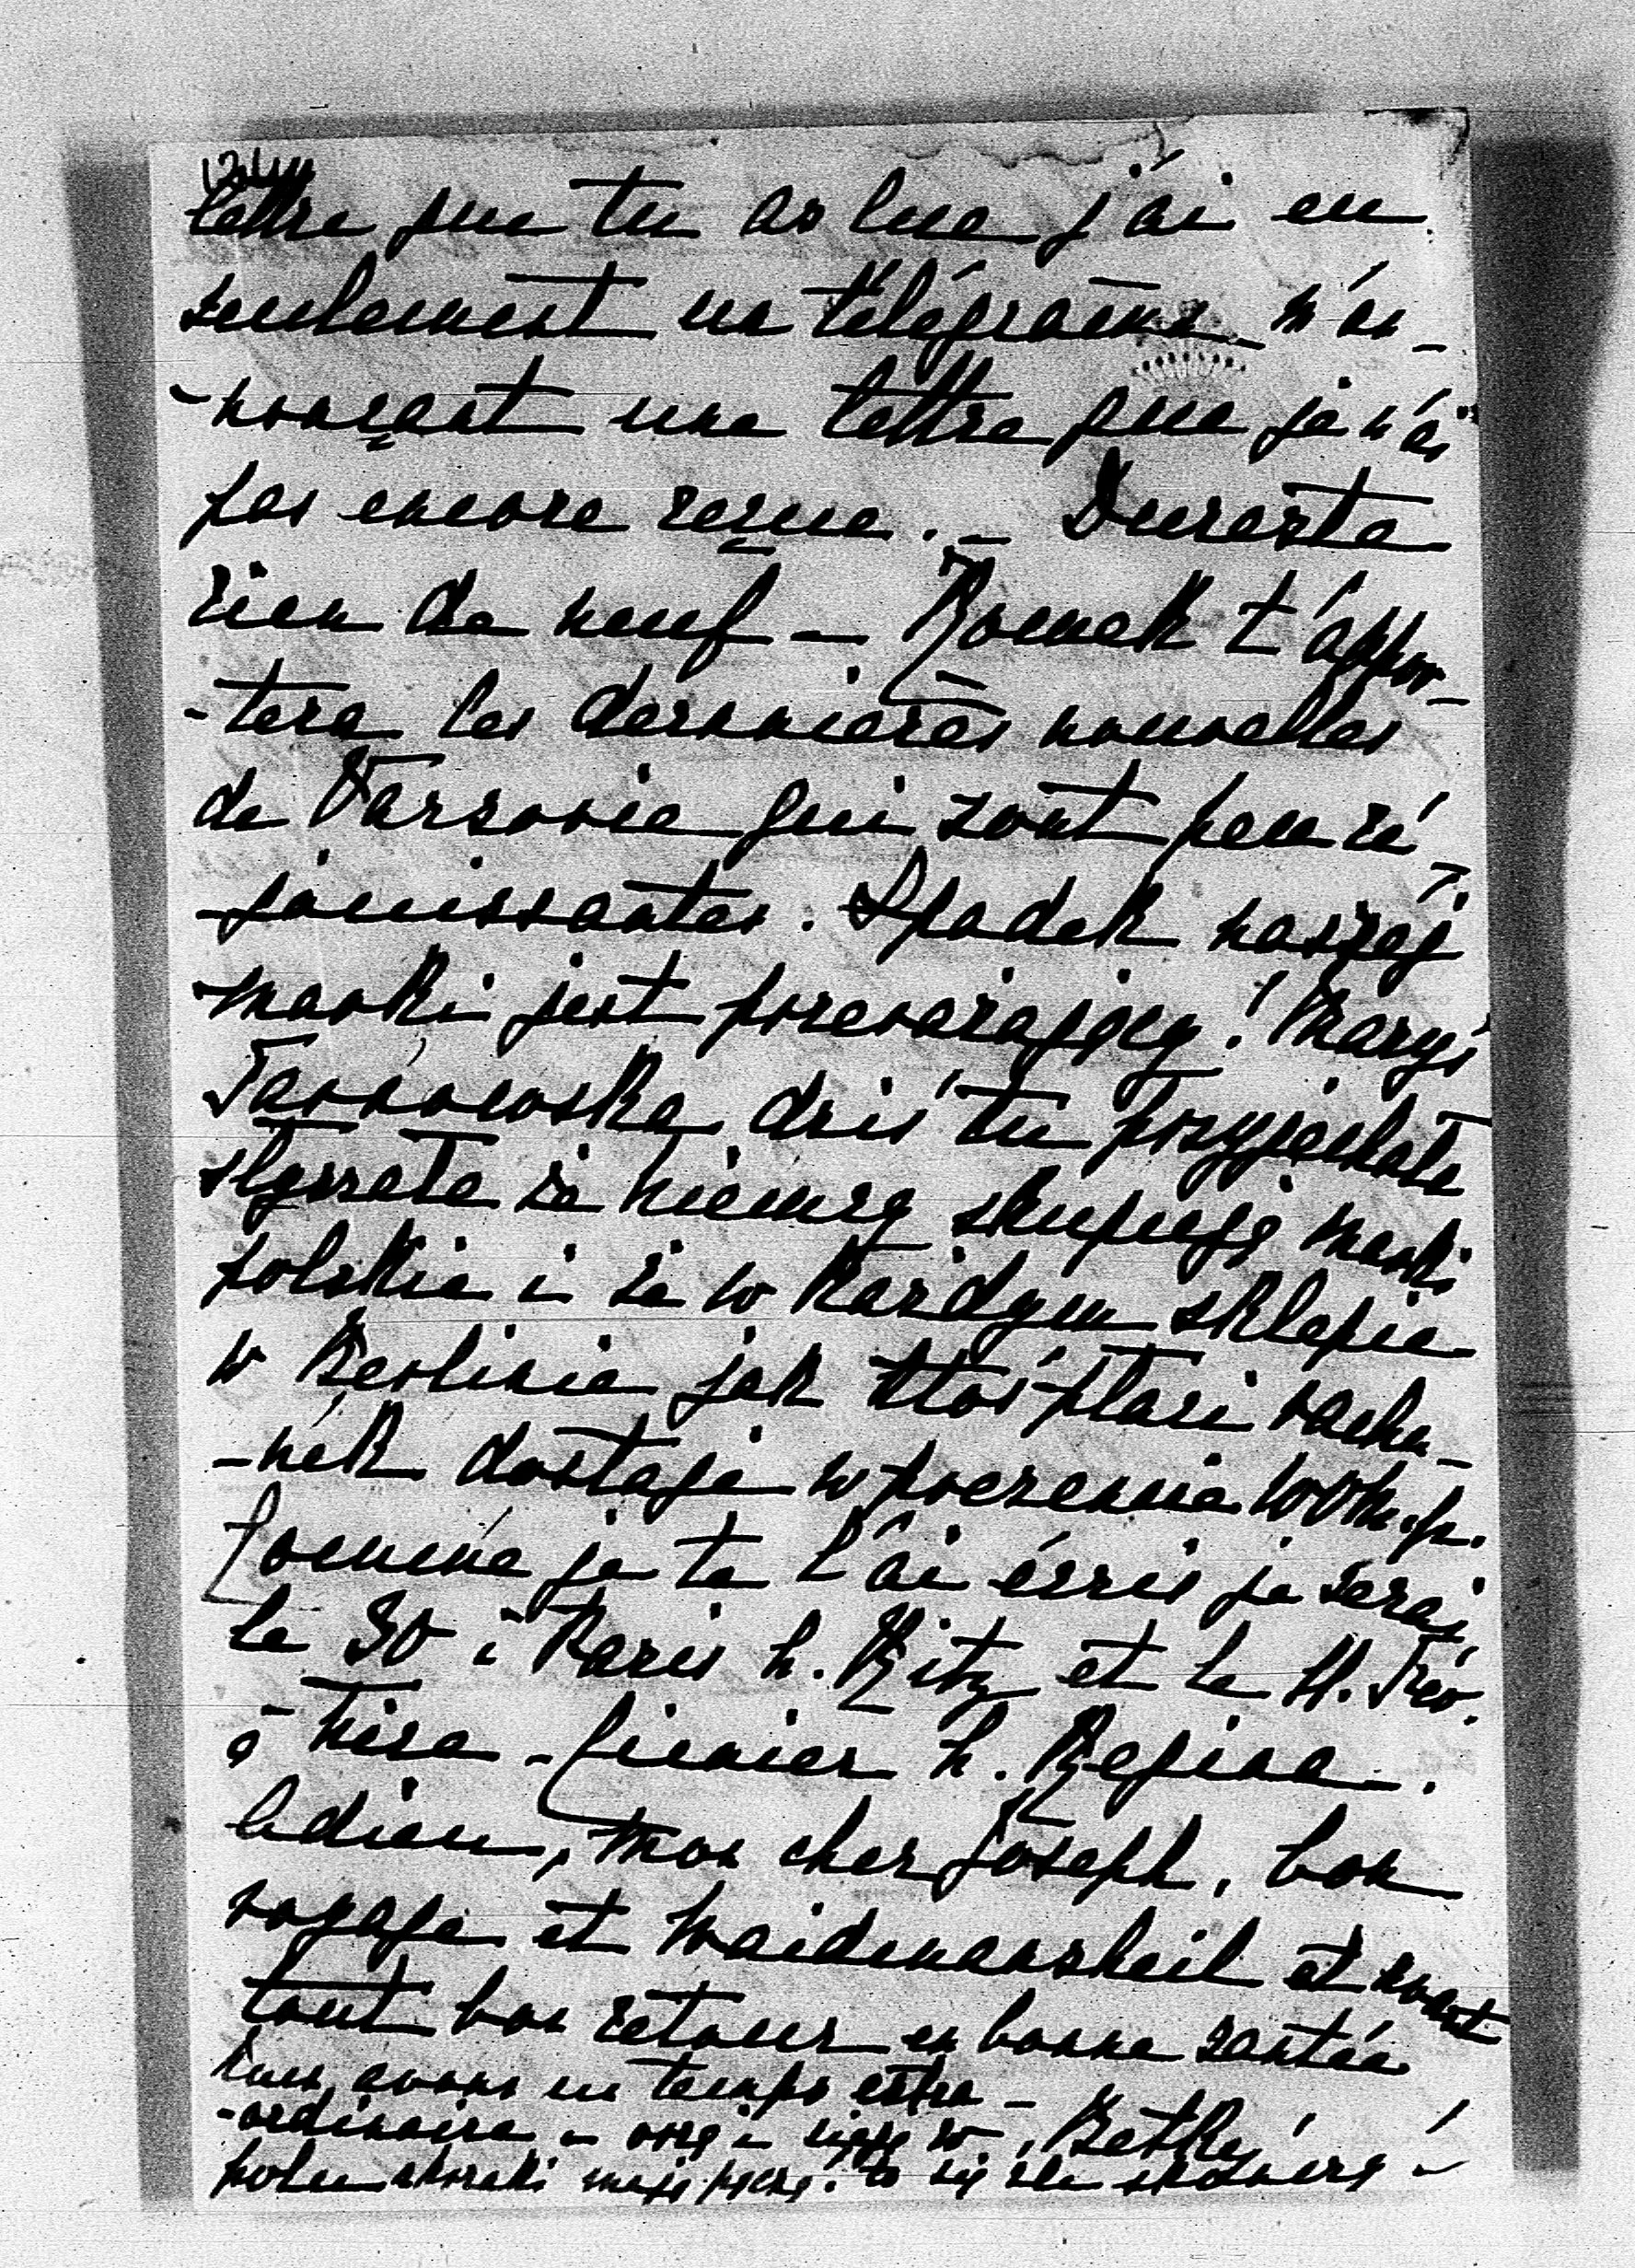 lettre que tu as lue j'ai eu
seulement un télégrame m'an-
-nonçant une lettre que je n'ai
pas encore reçue. — Dureste
rien de neuf — Romek t'appor-
-tera les dernieres nouvelles
de Varsovie qui sont peu ré-
-jouissantes. Spadek naszej
marki jest przerażający! Maryś
Tarnowska dziś tu przyjechała
słyszała że niemcy skupują marki
polskie i że w każdym sklepie
w Berlinie jak ktoś płaci rachu-
-nek dostaje w poczcie 100 m. p.
Comme je te l'ai écris je serai
le 30 à Paris h. Ritz et le 4. Fév.
à Nice-Cimiez h. Regina.
Adieu, mon cher Joseph, bon
voyage et Waidmansheil et avant
tout bon retour en bonne santée
Nous avons un temps extra-
-ordinaire - orzą i sieją w
polu skoraki mają pączki. to się źle skończy -
Betka